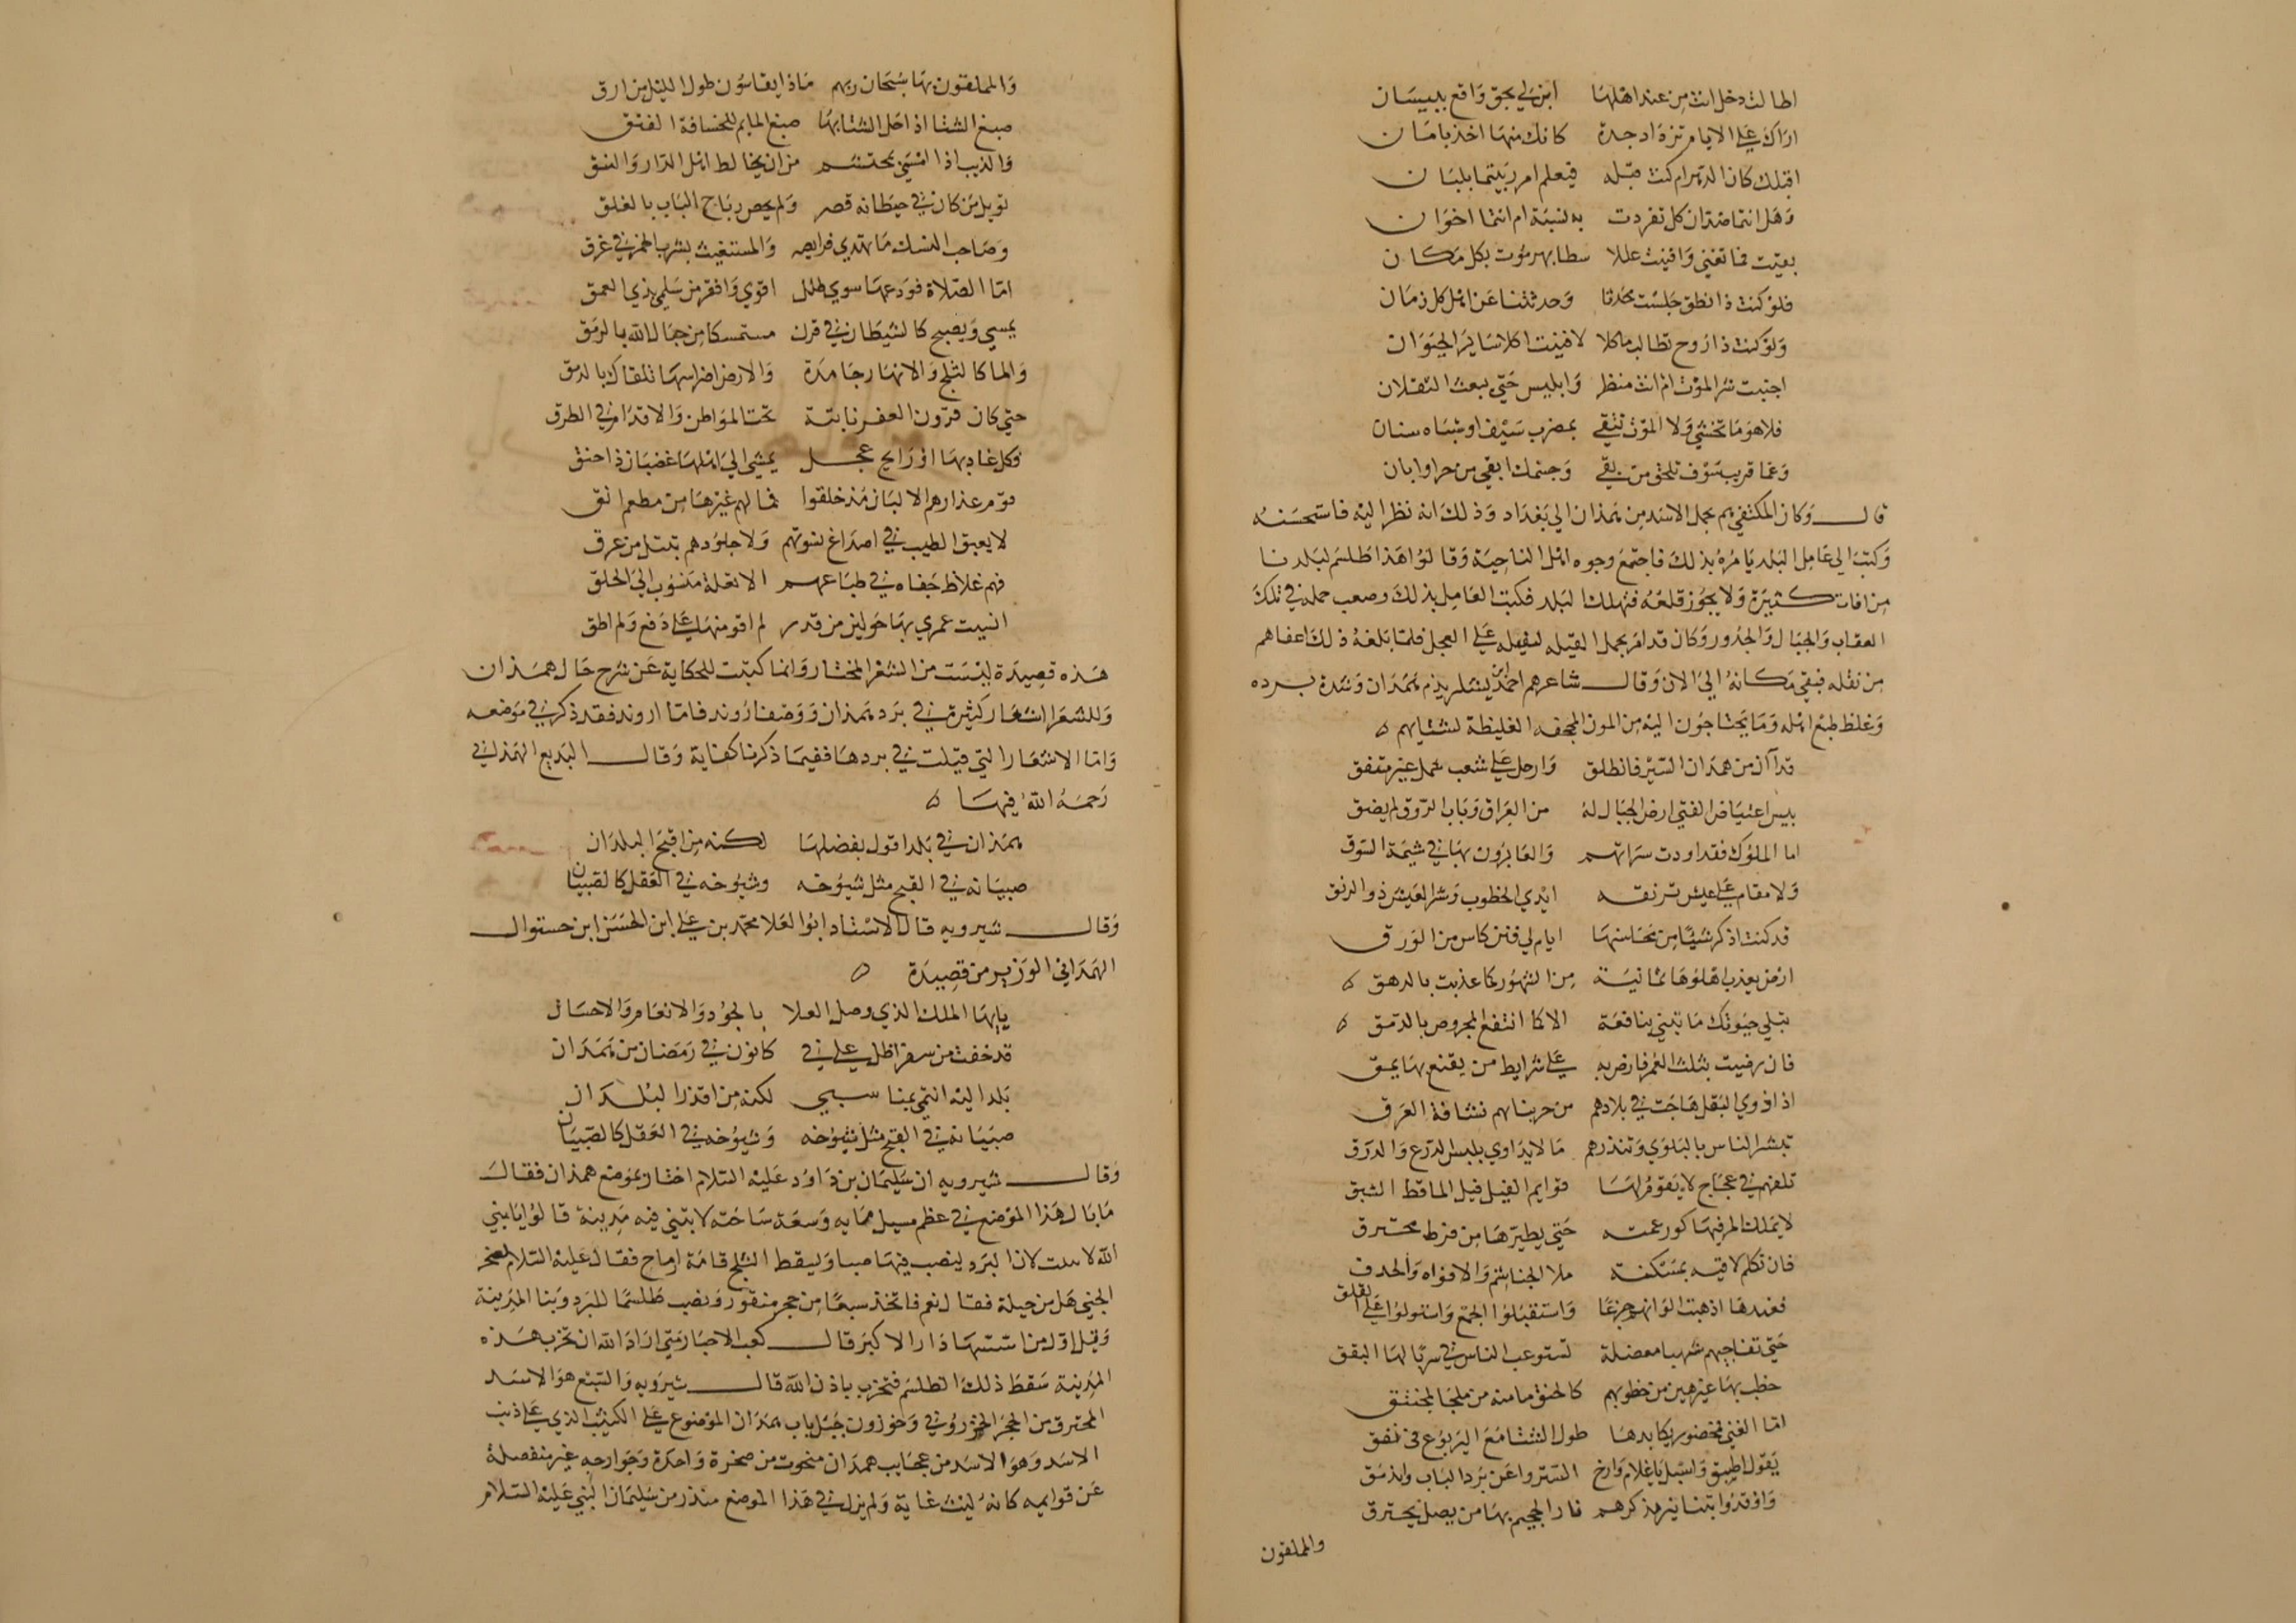 اطالت دخل انت من عند اهلها ابن لي بحق واقع ببيسان
اراك على الايام تزداد جدة كانك منها اخذ بامان
اقبلك كان الدهر ام كنت قبله فيعلم ام ربيتما بلبان
وهل انتما ضدان كل تفردت به نسبة ام انتما اخوان
بقيت فما تفني وافنيت عللا سطا بهم موت بكل مكان
فلو كنت ذا نطق جلست محدثا وحدثتنا عن اهل كل زمان
ولو كنت ذا روح تطالب ماكلا لافنيت اكلا ساير الحيوان
اجنبت شر الموت ام انت منظر وابليس حتي يبعث الثقلان
فلا هو ما تخشي ولا الموت تتقي بمضرب سيف او شباه سنان
وعما قريب سوف تلحق من بقي وجسمك ابقي من حرا وابان
قال وكان المكتفي هم بحمل الاسد من همذان الي بغداد وذلك انه نظر اليه فاستحسنه
وكتب الي عامل البلد يامره بذلك فاجتمع وجوه اهل الناحية وقالوا هذا طلسم لبلدنا
من افات كثيرة ولا يجوز قلعه فتهلك البلد فكتب العامل بذلك وصعب حمله في تلك
العقاب والجبال والجدور وكان قد امر بحمل الفيله لنقله على العجل فلما بلغه ذلك اعفاهم
من نقله فبقي مكانه الي الان وقال شاعرهم احمد بن يسار يذم همذان وشدة برده
وغلظ طبع اهله وما يحتاجون اليه من المون المجحفه الغليظة لشتايهم
قد آن من همذان السير فانطلق وارحل على شعب شمل غير متفق
بيس اعتياض الفتي ارض الجبال له من العراق وباب الرزق لم يضق
اما الملوك فقد اودت سراتهم والغابرون بها في شيمة السوق
ولا مقام على عيش ترنقه ايدي الخطوب وشر العيش ذو الرنق
قد كنت اذكر شيئا من محاسنها ايام لي فنن كاس من الورق
ارض يعذب اهلوها ثمانية من الشهور كما عذبت بالدهق
تبلي حيوتك ما تبني بنافعة الا كما انتفع المجروض بالدمق
فان رضيت بثلث العمر فارض به على شرايط من يقنع بها يمق
اذا ذوي البقل هاجت في بلادهم من حربياهم نشافة العرق
تبشر الناس بالبلوي وتنذرهم ما لا يداوي بلبس الدرع والدرق
تلفهم في عجاج لا يقوم لها قوايم الفيل فيل الماقط الشبق
لا يملك المر فيها كور عمته حتي يطيرها من فرط محترق
فان تكلم لاقيه بمسكنة ملا الخياشم والافواه والحدق
فعندها اذهبت الوانهم جزعا واستقبلوا الجمع واستولوا على القلق
حتي تفاجيهم شهبا معضلة تستوعب الناس في سربالها اليقق
خطب بها غير هين من خطوبهم كالخنق ما منه من ملجا لمختنق
اما الغني فمحصور يكابدها طول الشتا مع اليربوع في نفق
يقول اطبق واسبل يا غلام وارخ الستر واعن برد الباب واندمق
واوقدوا بتنانير تذكرهم نار الجحيم بها من يصل يحترق
والمملقون
والمملقون بها سبحان ربهم ماذا يقاسون طول الليل من ارق
صبغ الشتا اذا حل الشتا بها صبغ الماتم للحسانة الفنق
والذيب اذا امسي محتشم من ان يخالط اهل الدار والنسق
فويل من كان في حيطانه قصر ولم يخص رتاج الباب بالغلق
وصاحب النسك ما تهدي فرايصه والمستغيث بشرب الخمر في غرق
اما الصلاة فودعها سوي طلل اقوي واقفر من سلمي بذي العمق
يمسي ويصبح كالشيطان في قرن مستمسكا من حبال الله بالرمق
والما كالثلج والانهار جامدة والارض اضراسها تلقاك بالدمق
حتي كان قرون العفر نابتة تحت المواطن والاقدام في الطرق
وكل غاد بها او رايح عجل يمشي الي اهلها غضبان ذا حنق
قوم غذاوهم الالبان مذ خلقوا فما لهم غيرها من مطعم انق
لا يعبق الطيب في اصداغ نسوتهم ولا جلودهم تبتل من عرق
فهم غلاظ جفاه في طباعهم الا تعلة منسوب الي الخلق
افنيت عمري بها حولين من قدر لم اقو منها على دفع ولم اطق
هذه قصيدة ليست من الشعر المختار وانما كتبت للحكاية عن شرح حال همذان
وللشعرا اشعار كثيرة في برد همذان ووصف اروند فاما اروند فقد ذكر في موضعه
واما الاشعار التي قيلت في بردها ففيما ذكرنا كفاية وقال البديع الهمذاني
رحمه الله فيها
همذان في بلد اقول بفضلها لكنه من اقبح البلدان
صبيانه في القبح مثل شيوخه وشيوخه في العقل كالصبيان
وقال شيرويه قال الاستاد ابو العلا محمد بن على ابن الحسن ابن حستول
الهمذاني الوزير من قصيدة
يا ايها الملك الذي وصل العلا بالجود والانعام والاحسان
قد خفت من سفر اظل على في كانون في رمضان من همذان
بلد اليه انتمي بمناسبي لكنه من اقذر البلدان
صبيانه في القبح مثل شيوخه وشيوخه في العقل كالصبيان
وقال شيرويه ان سليمان بن داود عليه السلام اجتاز بموضع همذان فقال
ما بال هذا الموضع في عظم مسيل مايه وسعة ساحته لا تبني فيه مدينة قالوا يا نبي
الله لا يثبت لان البرد ينصب فيها صبا ويسقط الثلج قامة ارماح فقال عليه السلام لصخر
الجني هل من حيلة فقال نعم فاتخذ سبعا من حجر منقور ونصب طلسما للبرد وبنا المدينة
وقيل اول من اسسها دارا الاكبر قال كعب الاحبار متي اراد الله ان تخرب هذه
المدينة سقط ذلك الطلسم فتخرب باذن الله قال شيرويه والسبع هو الاسد
المحترق من الحجر الخوزوني وخوزون جبل باب همذان الموضوع على الكثيب الذي على ذنب
الاسد وهو الاسد من عجايب همذان منحوت من صخرة واحدة وجوارحه غير منفصلة
عن قوايمه كانه ليث غابة ولم يزل في هذا الموضع منذ زمن سليمان النبي عليه السلام